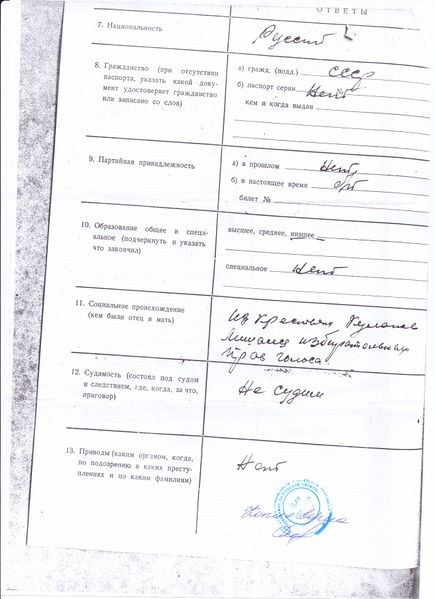 ОТВЕТЫ
7. Национальность
Русский
8. Гражданство (при отсутствии
паспорта, указать какой доку-
мент удостоверяет гражданство
или записано со слов)
а) гражд. (подд.) СССР
б) паспорт серии Нет №
кем и когда выдан
9. Партийная принадлежность
а) в прошлом Нет
б) в настоящее время
билет №
10. Образование общее и специ-
альное (подчеркнуть и указать
что закончил)
высшее, среднее, низшее
специальное Нет
11. Социальное происхождение
(кем были отец и мать)
Из крестьян кулаков
Лишался избирательных
прав голоса
12. Судимость (состоял под судом
и следствием, где, когда, за что,
приговор)
Не судим
13. Приводы (каким органом, когда,
по подозрению в каких престу-
плениях и по каким фамилиям)
Нет
Копия верна